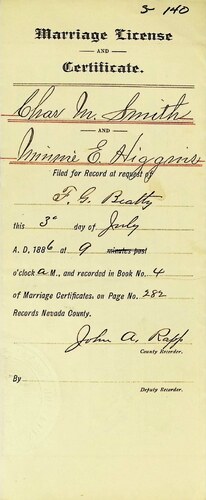 S 140
Marriage License
AND
Certificate.
Chas M. Smith
AND
Minnie E. Higgins
Filed for Record at request of
F. G. Beatty
this 3d day of July
A. D. 1886 at 9 minutes past
o'clock A M., and recorded in Book No. 4
of Marriage Certificates, on Page No. 282
Records Nevada County.
John A. Rapp
County Recorder.
By
Deputy Recorder.